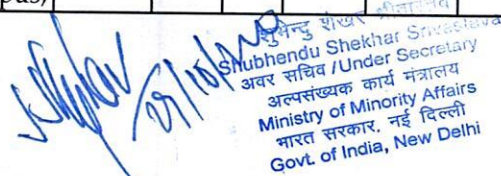 pas)
शुभेन्दु शेखर श्रीवास्तव
Shubhendu Shekhar Srivastava
अवर सचिव /Under Secretary
अल्पसंख्यक कार्य मंत्रालय
Ministry of Minority Affairs
भारत सरकार, नई दिल्ली
Govt. of India, New Delhi